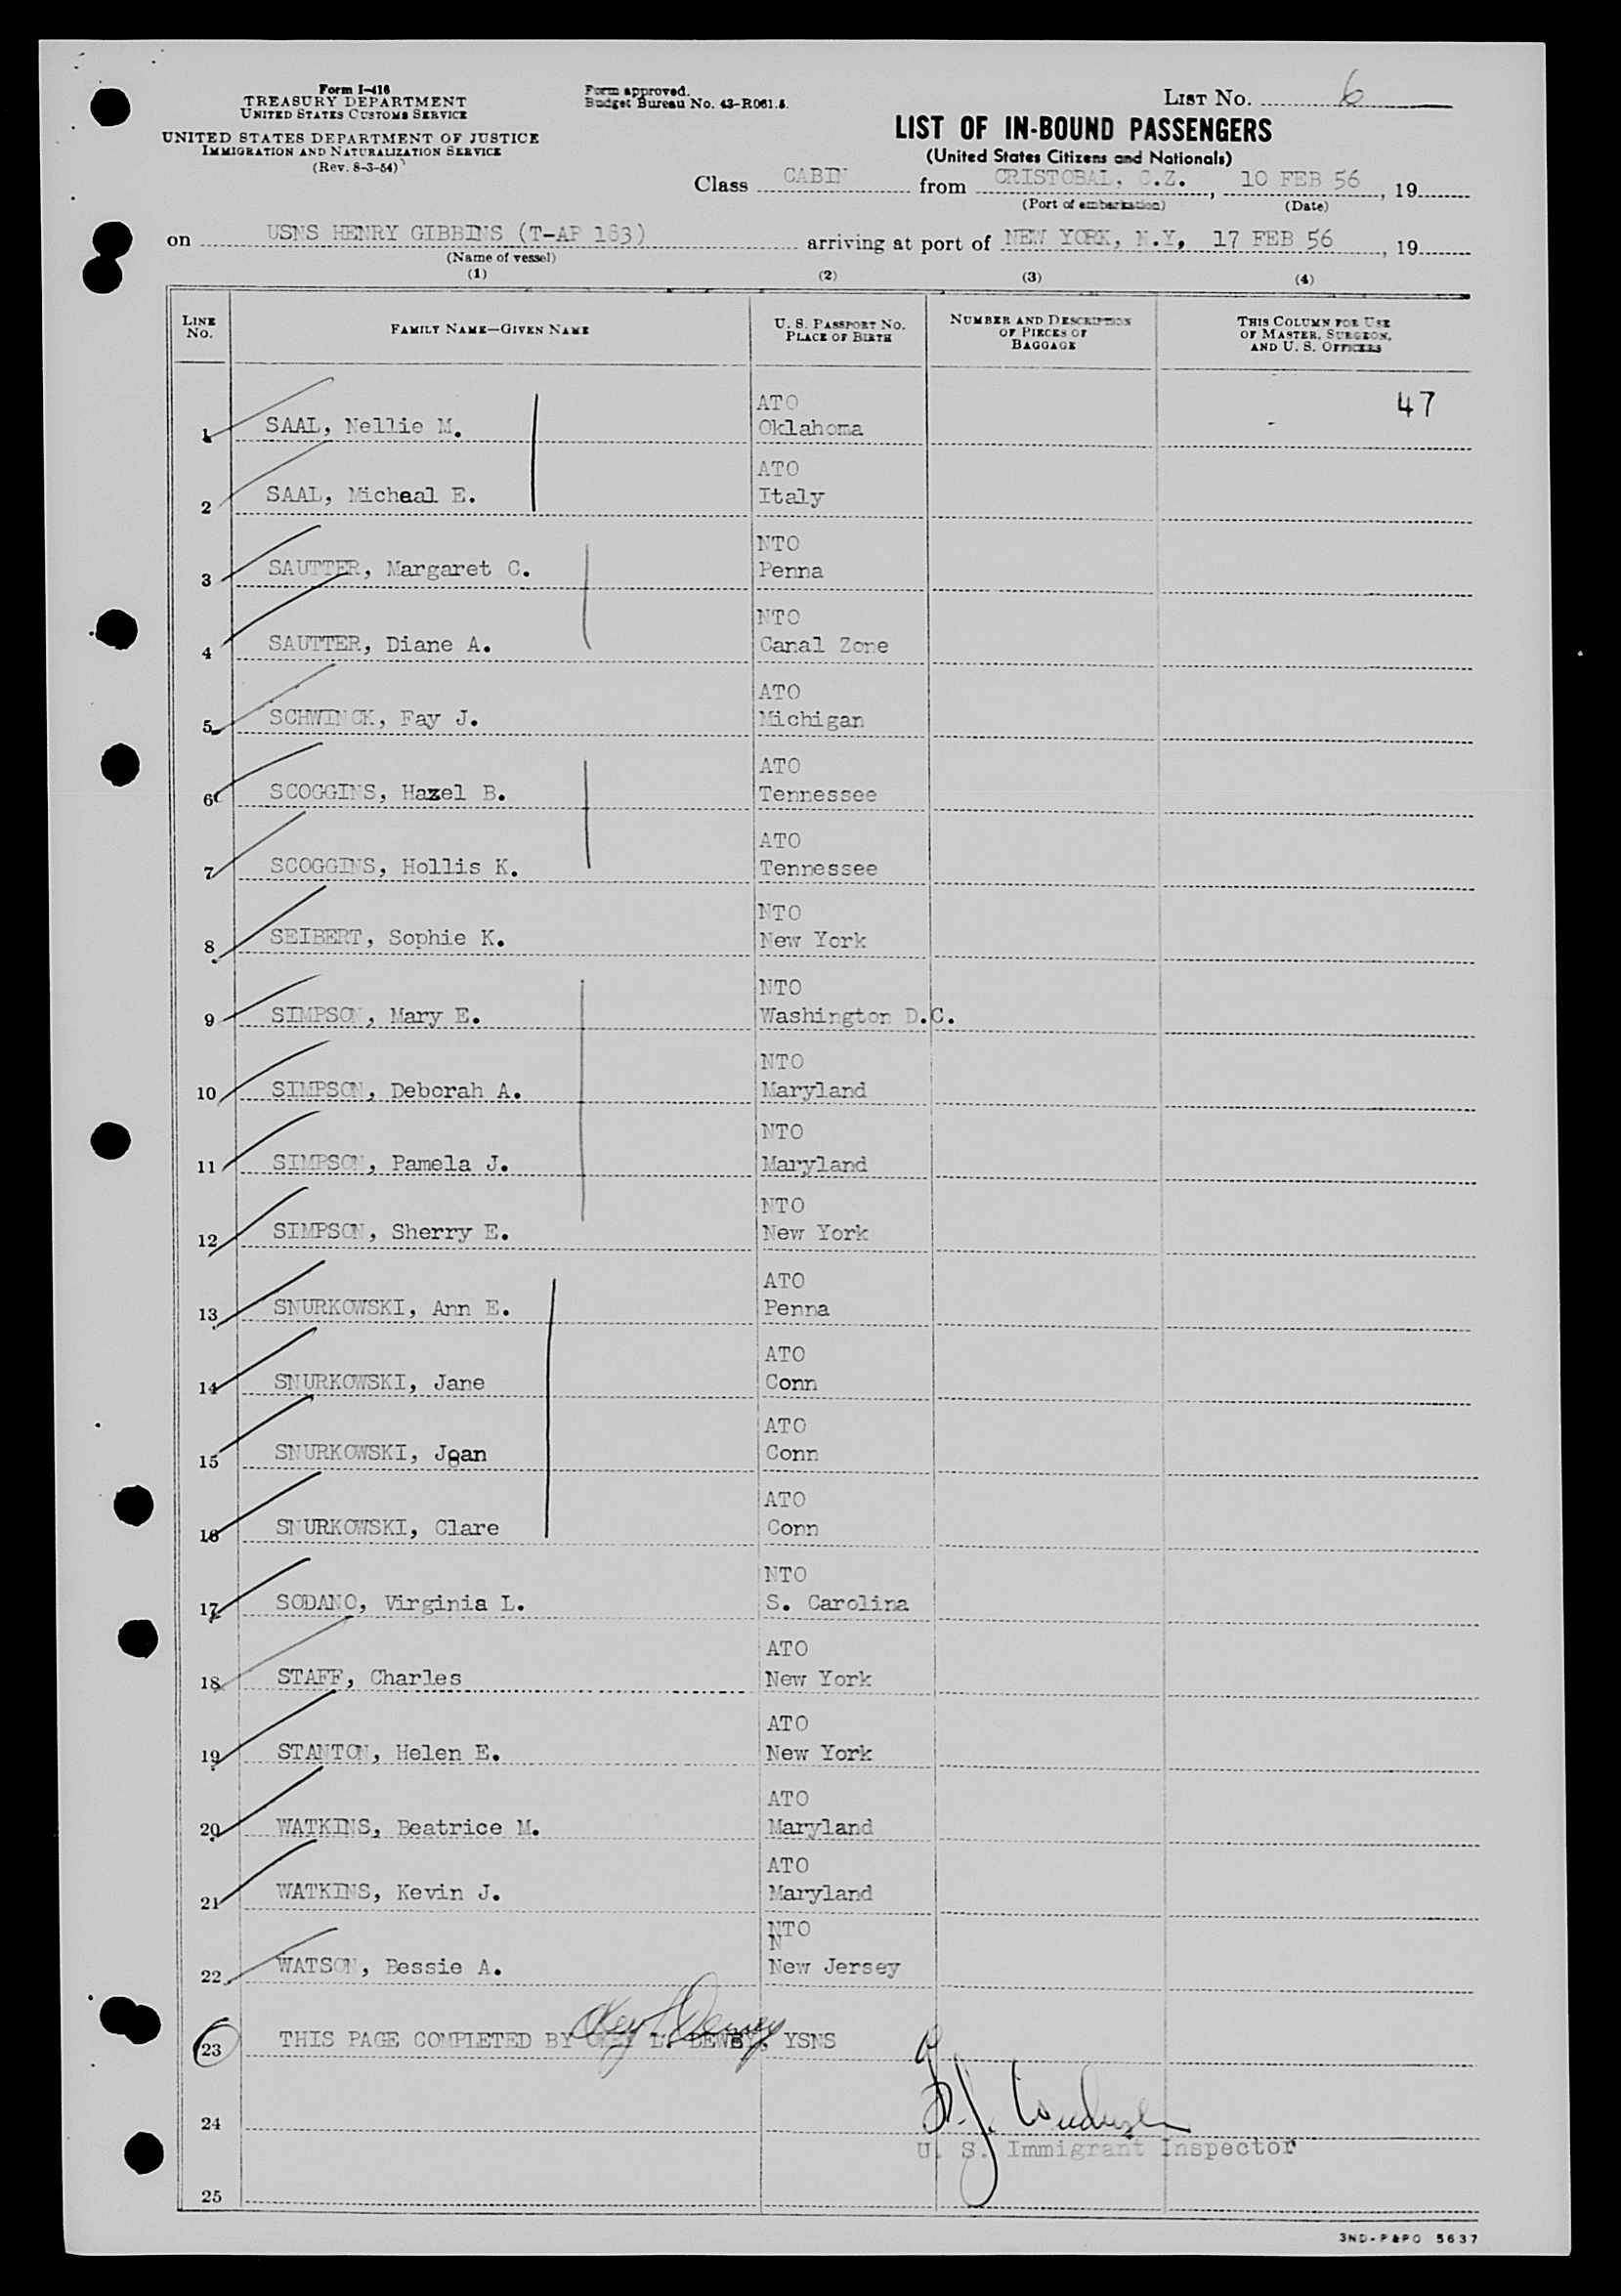 Form I-416
TREASURY DEPARTMENT
UNITED STATES CUSTOMS SERVICE
UNITED STATES DEPARTMENT OF JUSTICE
IMMIGRATION AND NATURALIZATION SERVICE
(Rev. 8-3-54)
Form approved.
Budget Bureau No. 43-R061.5.
LIST NO. 6
LIST OF IN-BOUND PASSENGERS
(United States Citizens and Nationals)
Class CABIN from CRISTOBAL, C.Z., 10 FEB 56, 19
(Port of embarkation) (Date)
on USNS HENRY GIBBINS (T-AP 183) arriving at port of NEW YORK, N.Y., 17 FEB 56, 19
(Name of vessel)
(1) (2) (3) (4)
LINE NO. FAMILY NAME—GIVEN NAME U. S. PASSPORT NO. PLACE OF BIRTH NUMBER AND DESCRIPTION OF PIECES OF BAGGAGE THIS COLUMN FOR USE OF MASTER, SURGEON, AND U. S. OFFICERS
47
ATO
1 SAAL, Nellie M. Oklahoma
ATO
2 SAAL, Micheal E. Italy
NTO
3 SAUTTER, Margaret C. Penna
NTO
4 SAUTTER, Diane A. Canal Zone
ATO
5 SCHWINCK, Fay J. Michigan
ATO
6 SCOGGINS, Hazel B. Tennessee
ATO
7 SCOGGINS, Hollis K. Tennessee
NTO
8 SEIBERT, Sophie K. New York
NTO
9 SIMPSON, Mary E. Washington D.C.
NTO
10 SIMPSON, Deborah A. Maryland
NTO
11 SIMPSON, Pamela J. Maryland
NTO
12 SIMPSON, Sherry E. New York
ATO
13 SNURKOWSKI, Ann E. Penna
ATO
14 SNURKOWSKI, Jane Conn
ATO
15 SNURKOWSKI, Joan Conn
ATO
16 SNURKOWSKI, Clare Conn
NTO
17 SODANO, Virginia L. S. Carolina
ATO
18 STAFF, Charles New York
ATO
19 STANTON, Helen E. New York
ATO
20 WATKINS, Beatrice M. Maryland
ATO
21 WATKINS, Kevin J. Maryland
NTO
N
22 WATSON, Bessie A. New Jersey
23 THIS PAGE COMPLETED BY L. DEWEY, YSNS
24
U. S. Immigrant Inspector
25
3ND-P&PO 5637